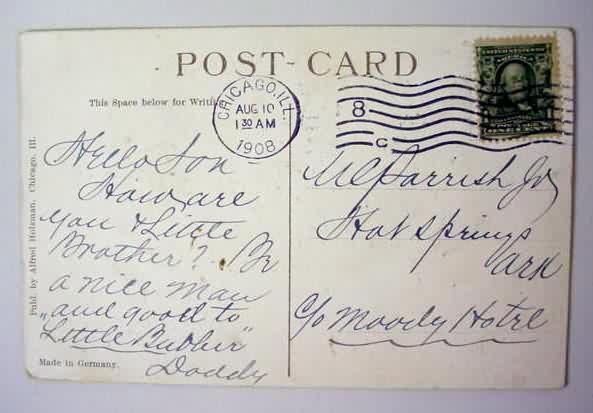 POST-CARD
This Space below for Writing
CHICAGO, ILL.
AUG 10
1 30 AM
1908
8
C
UNITED STATES OF AMERICA
Hello Son
How are
you & Little
Brother? Be
a nice man
„and good to
Little Bubber"
Daddy
Parrish Jr
Hot Springs
Ark
c/o Moody Hotel
Publ. by Alfred Holzman, Chicago, Ill.
Made in Germany.